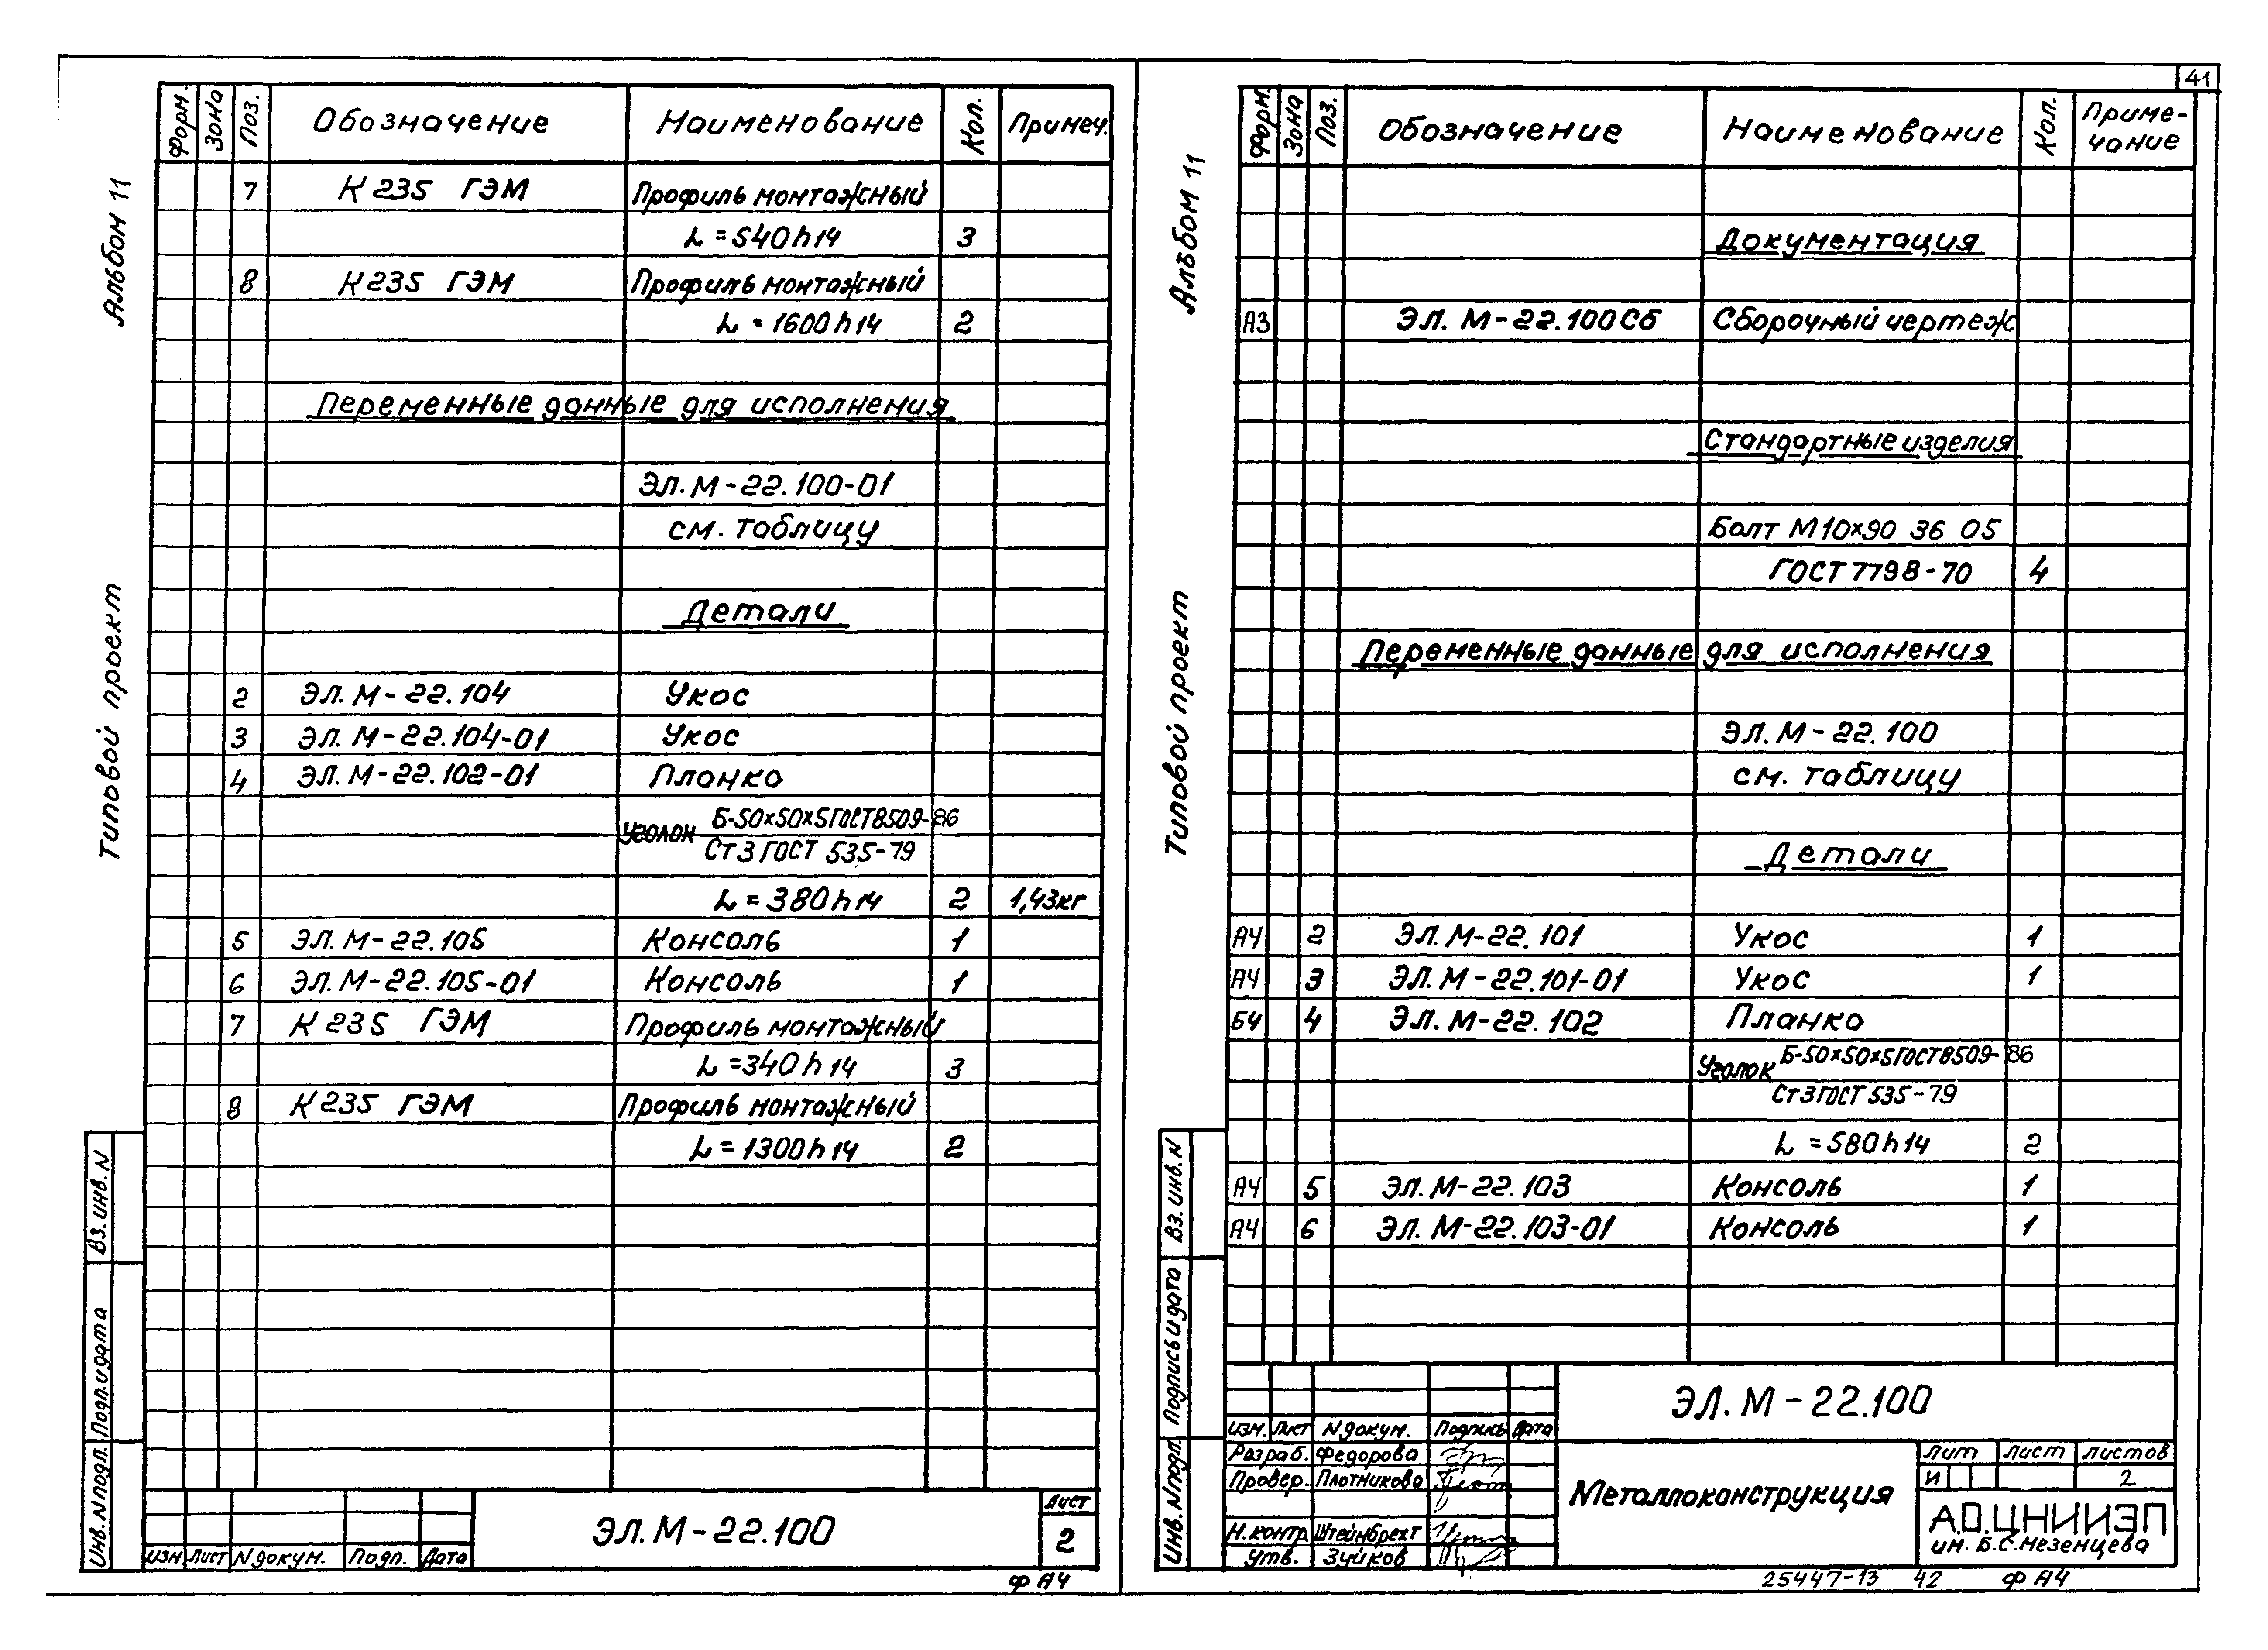 41
Альбом 11
Типовой проект
Форм. Зона Поз. Обозначение Наименование Кол. Примеч.
7 К 235 ГЭМ Профиль монтажный
L = 540 h 14 3
8 К 235 ГЭМ Профиль монтажный
L = 1600 h 14 2
Переменные данные для исполнения
ЭЛ. М - 22. 100-01
см. таблицу
Детали
2 ЭЛ. М - 22. 104 Укос
3 ЭЛ. М - 22. 104-01 Укос
4 ЭЛ. М - 22. 102-01 Планка
Б-50х50х5 ГОСТ 8509-86
Уголок
Ст 3 ГОСТ 535-79
L = 380 h 14 2 1,43кг
5 ЭЛ. М - 22. 105 Консоль 1
6 ЭЛ. М - 22. 105-01 Консоль 1
7 К 235 ГЭМ Профиль монтажный
L = 340 h 14 3
8 К 235 ГЭМ Профиль монтажный
L = 1300 h 14 2
Вз. инв. N
Подп. и дата
Инв. N подп.
Изм. Лист N докум. Подп. Дата
ЭЛ. М - 22.100
Лист
2
Ф А4
Альбом 11
Типовой проект
Форм. Зона Поз. Обозначение Наименование Кол. Приме-
чание
Документация
А3 ЭЛ. М - 22. 100 Сб Сборочный чертеж
Стандартные изделия
Болт М10х90 36 05
ГОСТ 7798-70 4
Переменные данные для исполнения
ЭЛ. М - 22. 100
см. таблицу
Детали
А4 2 ЭЛ. М - 22. 101 Укос 1
А4 3 ЭЛ. М - 22. 101-01 Укос 1
БЧ 4 ЭЛ. М - 22. 102 Планка
Б-50х50х5 ГОСТ 8509-86
Уголок
Ст 3 ГОСТ 535-79
L = 580 h 14 2
А4 5 ЭЛ. М - 22. 103 Консоль 1
А4 6 ЭЛ. М - 22. 103-01 Консоль 1
Вз. инв. N
Подпись и дата
Инв. N подп.
ЭЛ. М - 22.100
Изм. Лист N докум. Подпись Дата
Разраб. Федорова
Провер. Плотникова
Н. контр. Штейнбрехт
Утв. Зуйков
Металлоконструкция
Лит Лист Листов
И 2
А.О. ЦНИИЭП
им. Б.С. Мезенцева
25447-13 42 Ф А4